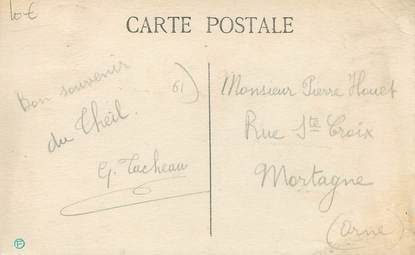 10€
CARTE POSTALE
Bon souvenir
du Theil.
G. Tacheau
61)
Monsieur Pierre Houet
Rue Ste Croix
Mortagne
(Orne)